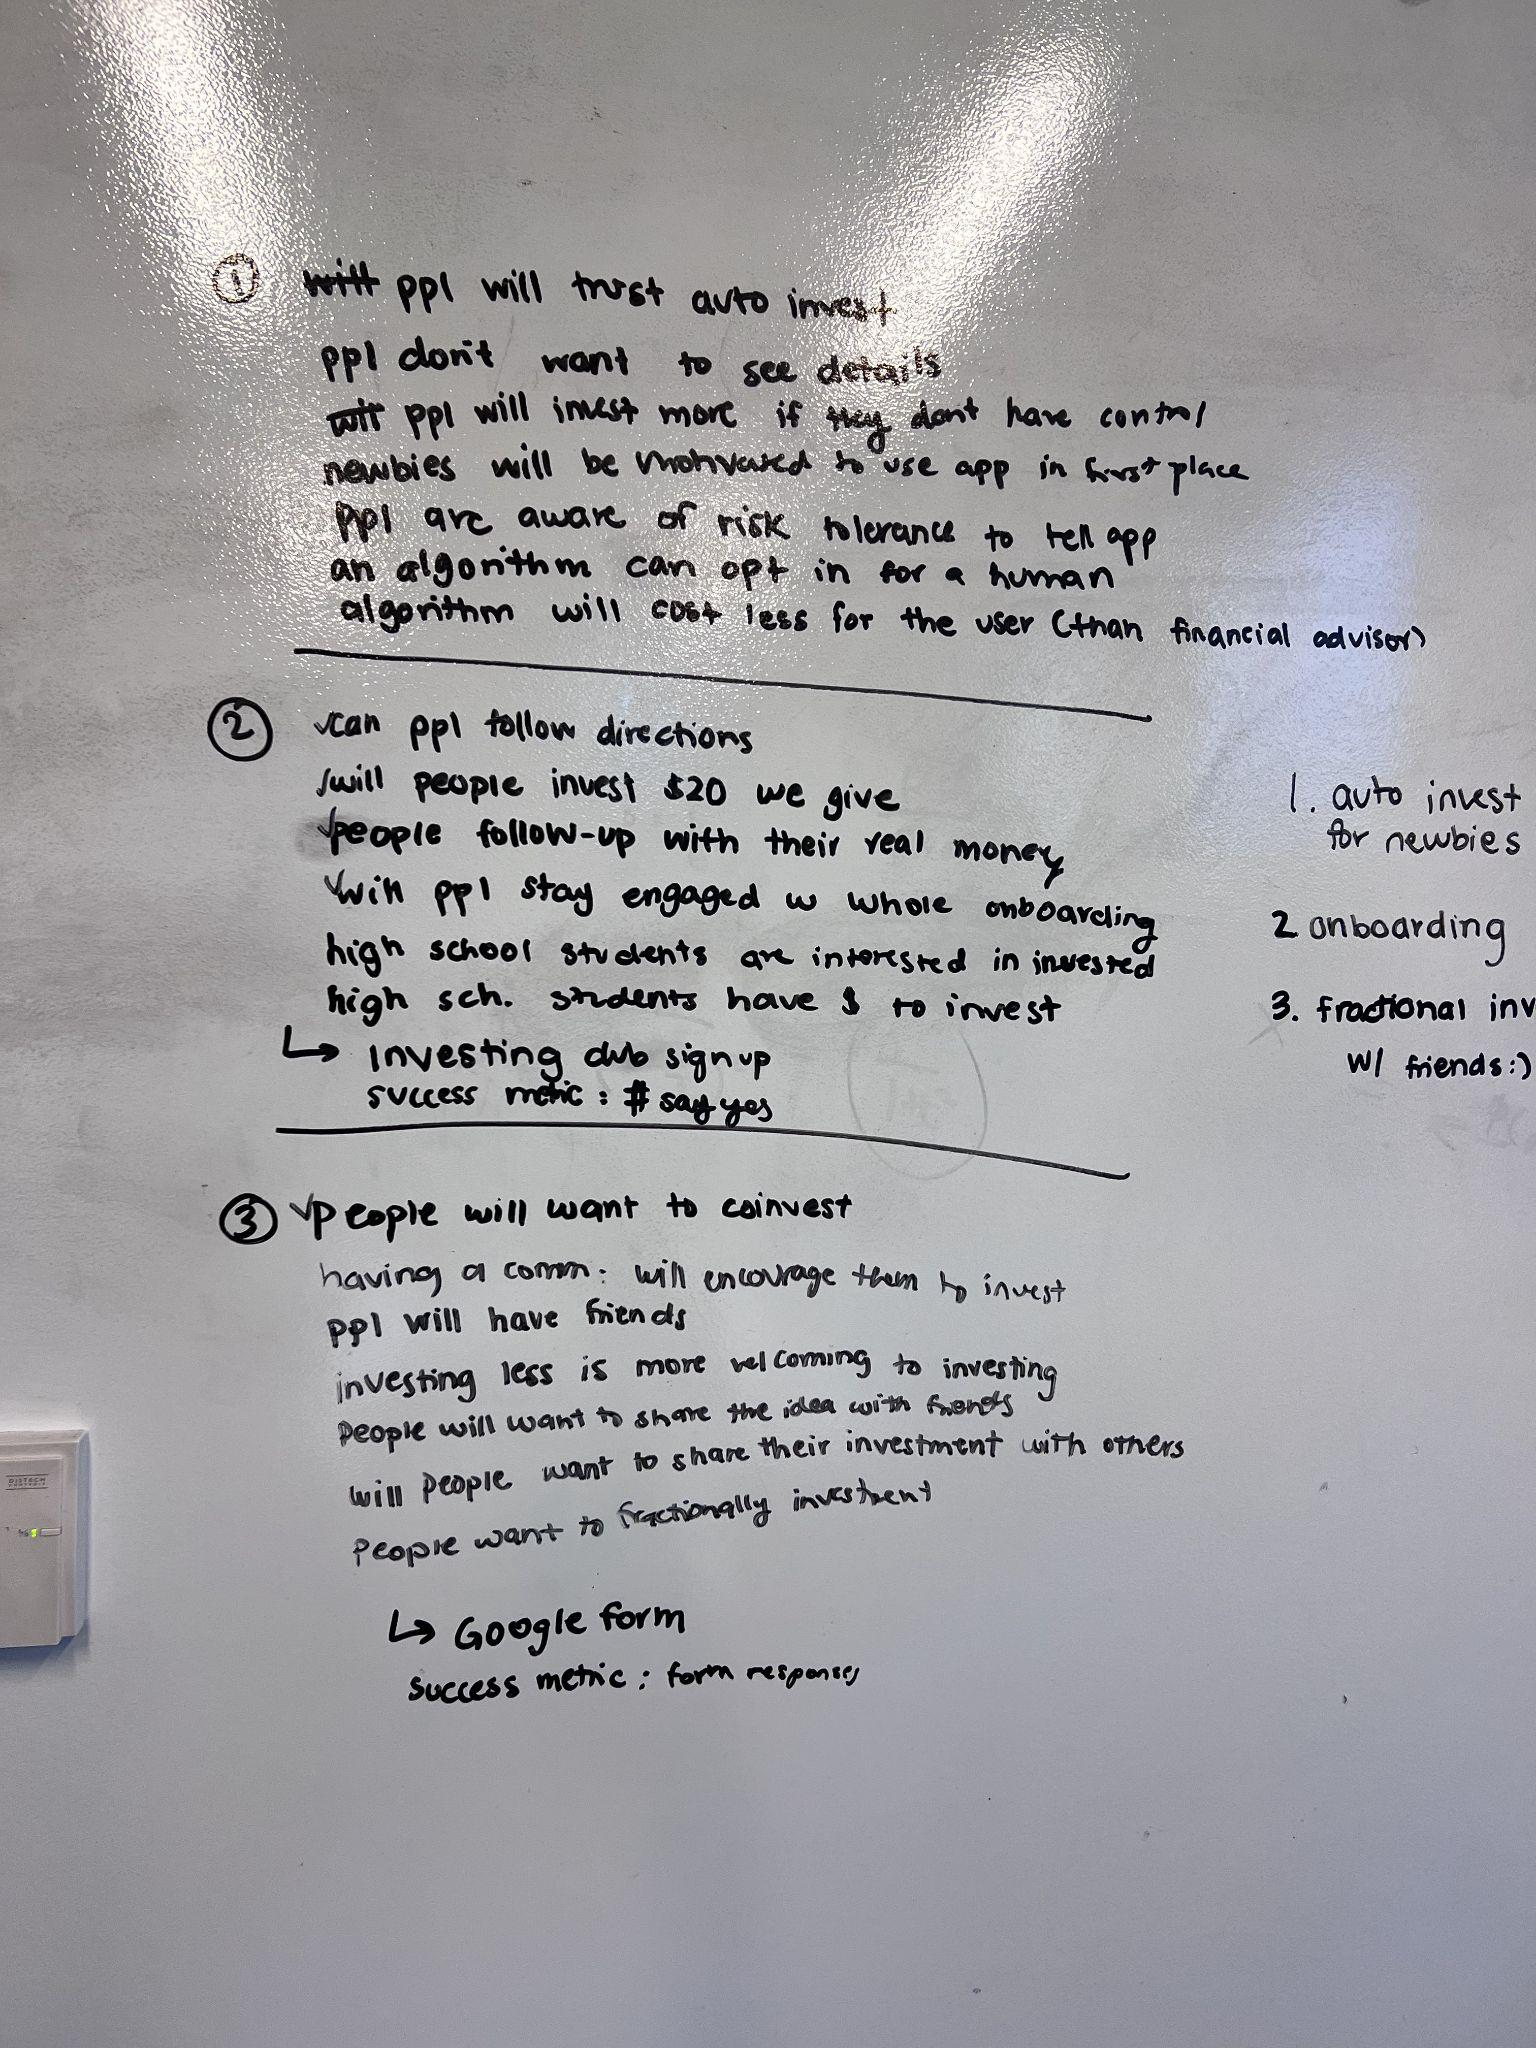 ① will ppl will trust auto invest
ppl don't want to see details
will ppl will invest more if they don't have control
newbies will be motivated to use app in first place
ppl are aware of risk tolerance to tell app
an algorithm can opt in for a human
algorithm will cost less for the user (than financial advisor)
② ✓can ppl follow directions
✓will people invest $20 we give
✓people follow-up with their real money
✓will ppl stay engaged w whole onboarding
high school students are interested in invested
high sch. students have $ to invest
↳ investing club sign up
success metric: # say yes
③ ✓people will want to coinvest
having a comm. will encourage them to invest
ppl will have friends
investing less is more welcoming to investing
People will want to share the idea with friends
will people want to share their investment with others
People want to fractionally investment
↳ Google form
success metric: form responses
1. auto invest
for newbies
2 onboarding
3. fractional inv
w/ friends:)
DISTECH
CONTROLS